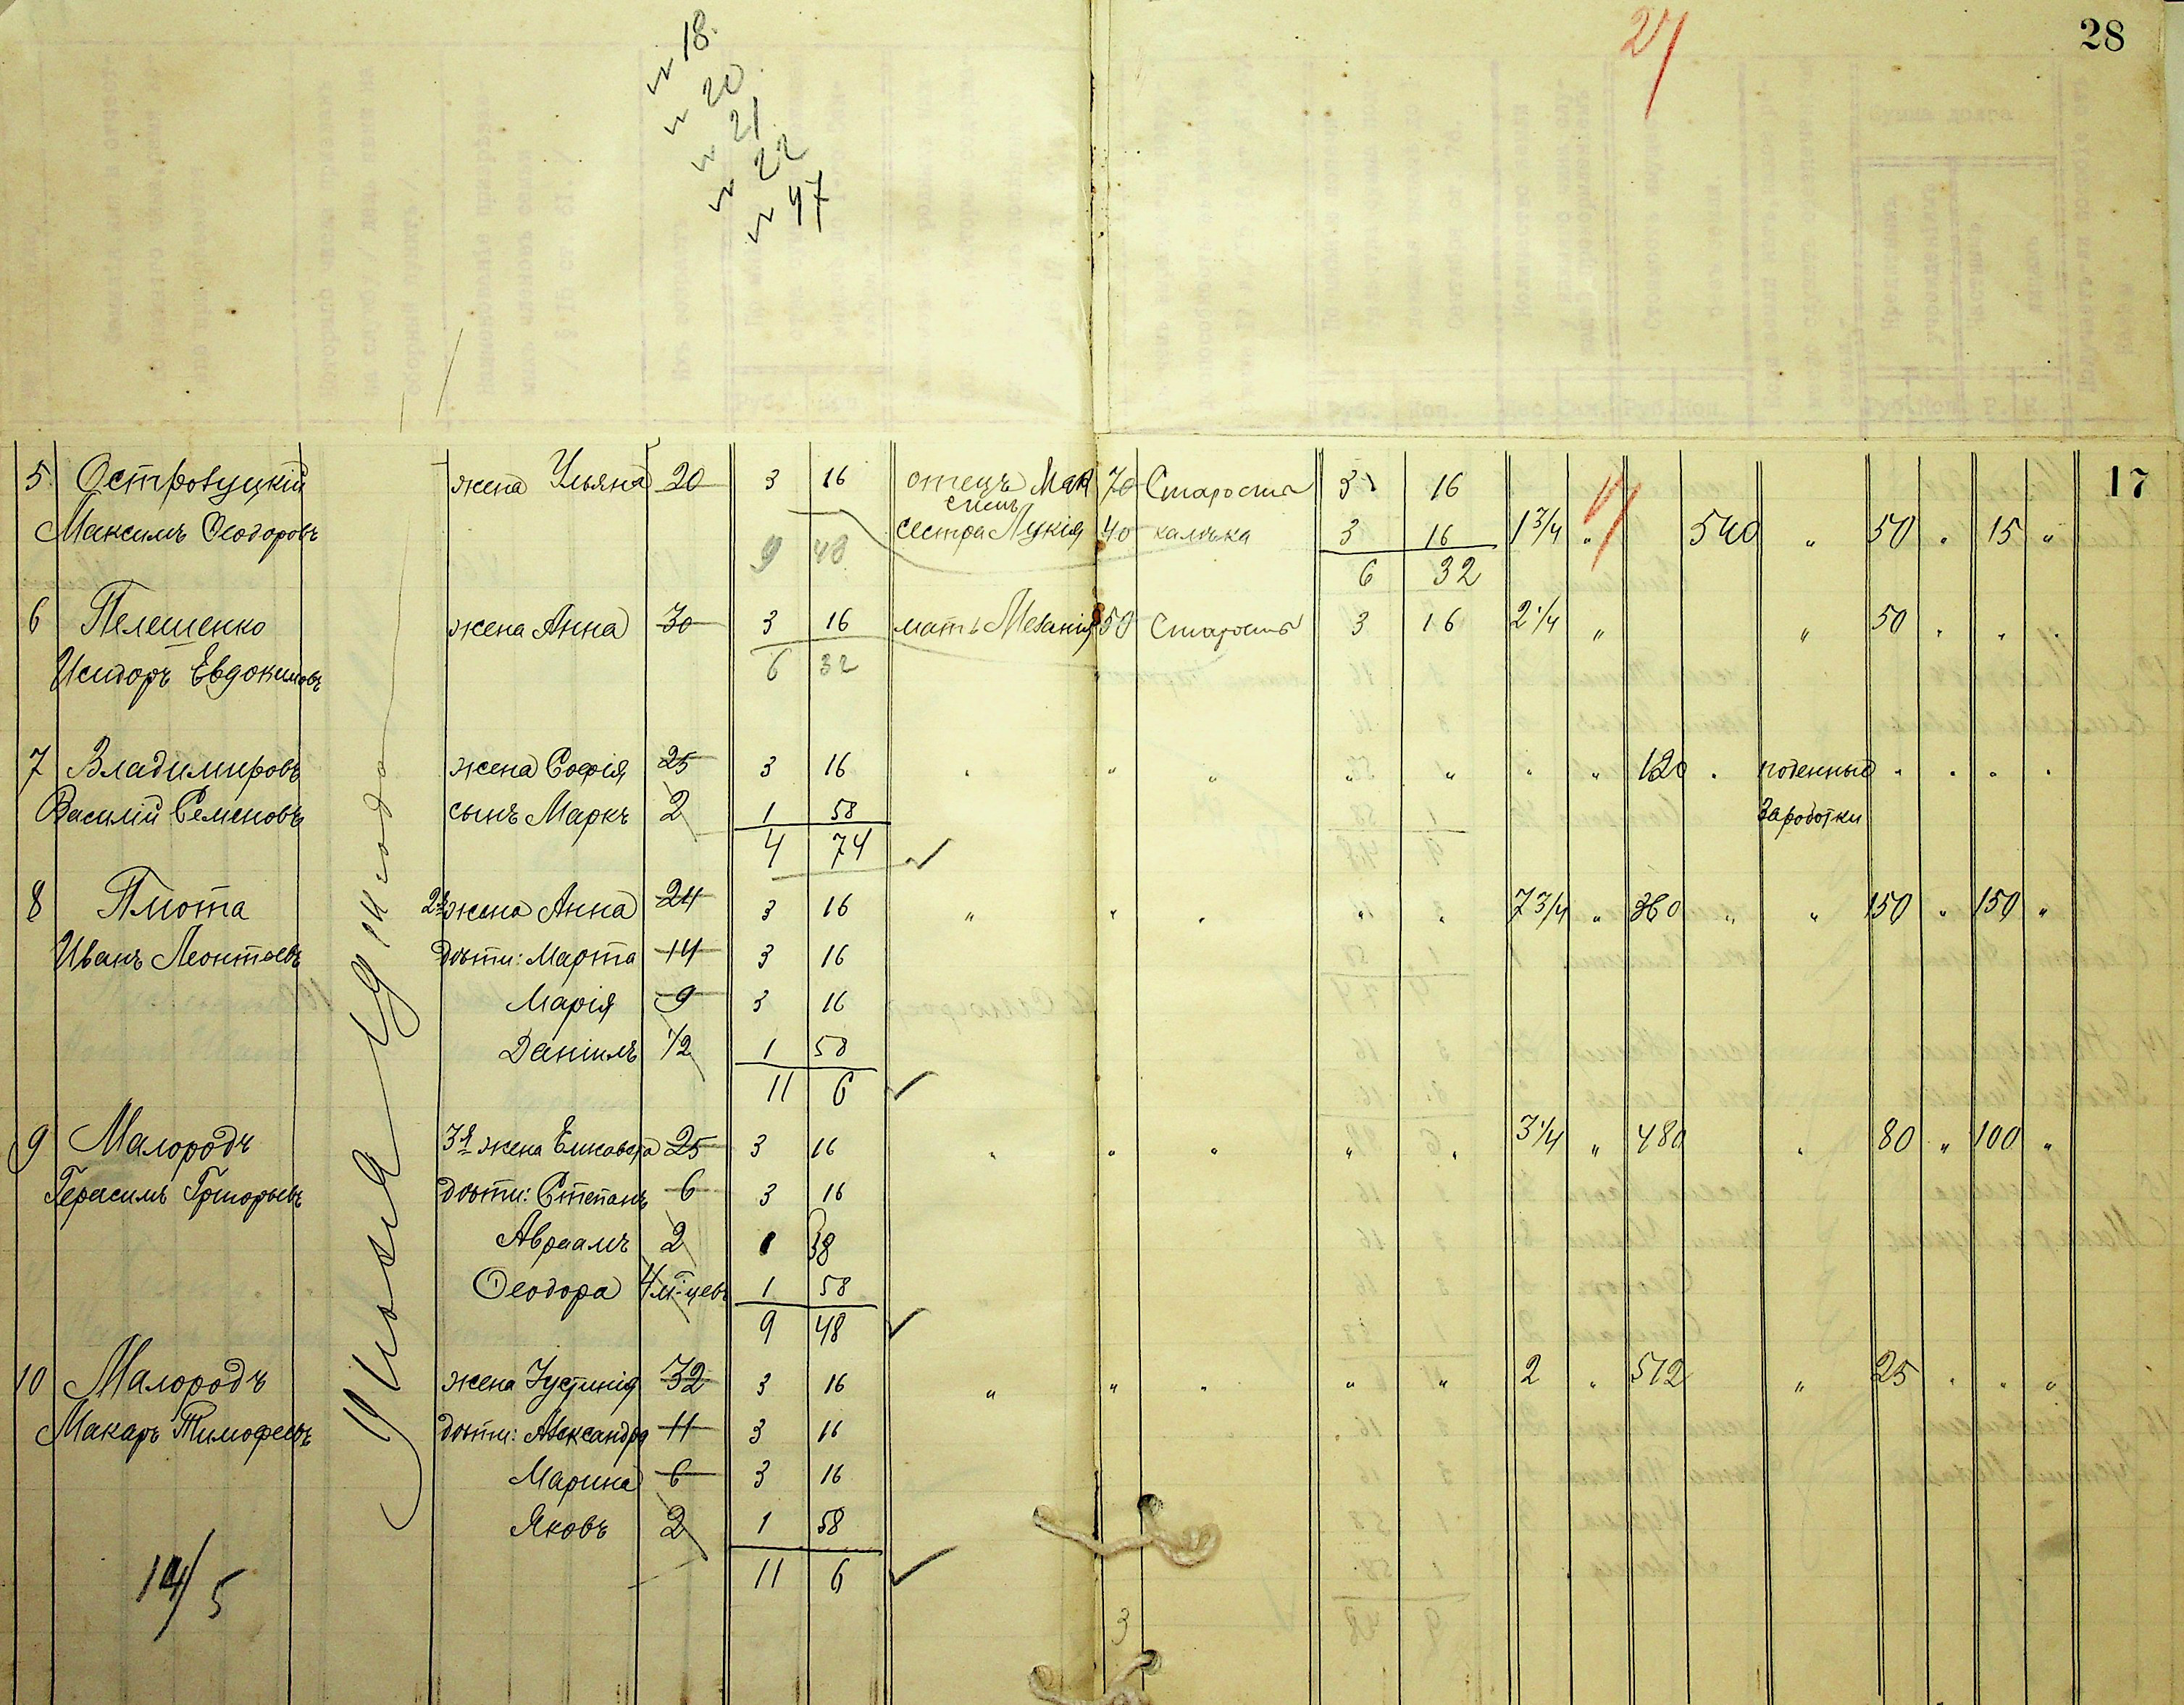 28
27
18.
20
21
22
47
17
5 Островуцкій жена Ульяна 20 3 16 отецъ Мак 70 Старость 3 16
симъ
Максимъ Ѳеодоровъ сестра Лукія 40 калѣка 3 16 1 3/4 " 540 " 50 " 15 "
9 48 6 32
6 Пелешенко жена Анна 30 3 16 мать Меланія 50 Старость 3 16 2 1/4 " " 50
Исидоръ Евдокимовъ 6 32
7 Владимировъ жена Софія 25 3 16 " " " " " " 120 . поденные
Василій Семеновъ сынъ Маркъ 2 1 58 Заработки
4 74
8 Плюта 2я жена Анна 24 3 16 " " " " " 7 3/4 " 360 " " 150 " 150 "
Иванъ Леонтьевъ дѣти: Марта 14 3 16
Марія 9 3 16
Даніилъ 1/2 1 58
11 6
9 Малородъ 3я жена Елисавета 25 3 16 " " " " " 3 1/4 " 480 " 80 " 100 "
Герасимъ Григорьевъ дѣти: Степанъ 6 3 16
Авраамъ 2 1 58
Ѳеодора 4 м-цевъ 1 58
9 48
10 Малородъ жена Іустинія 32 3 16 " " " " " 2 " 512 " 25 " " "
Макаръ Тимофеевъ дѣти: Александра 11 3 16
Марина 6 3 16
Яковъ 2 1 58
11 6
14/5
3